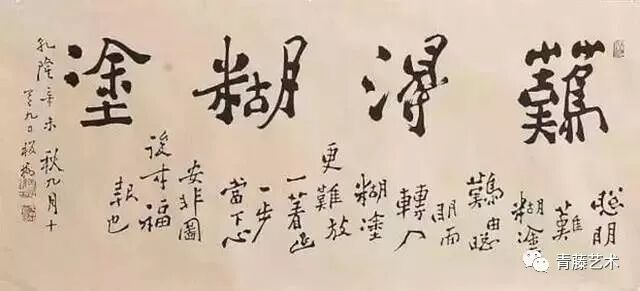 難得糊塗
聰明
難
糊塗
難由聰
明而
轉入
糊塗
更難放
一著退
一步
當下心
安非圖
後來福
報也
乾隆辛未秋九月十
九日板橋
青藤艺术